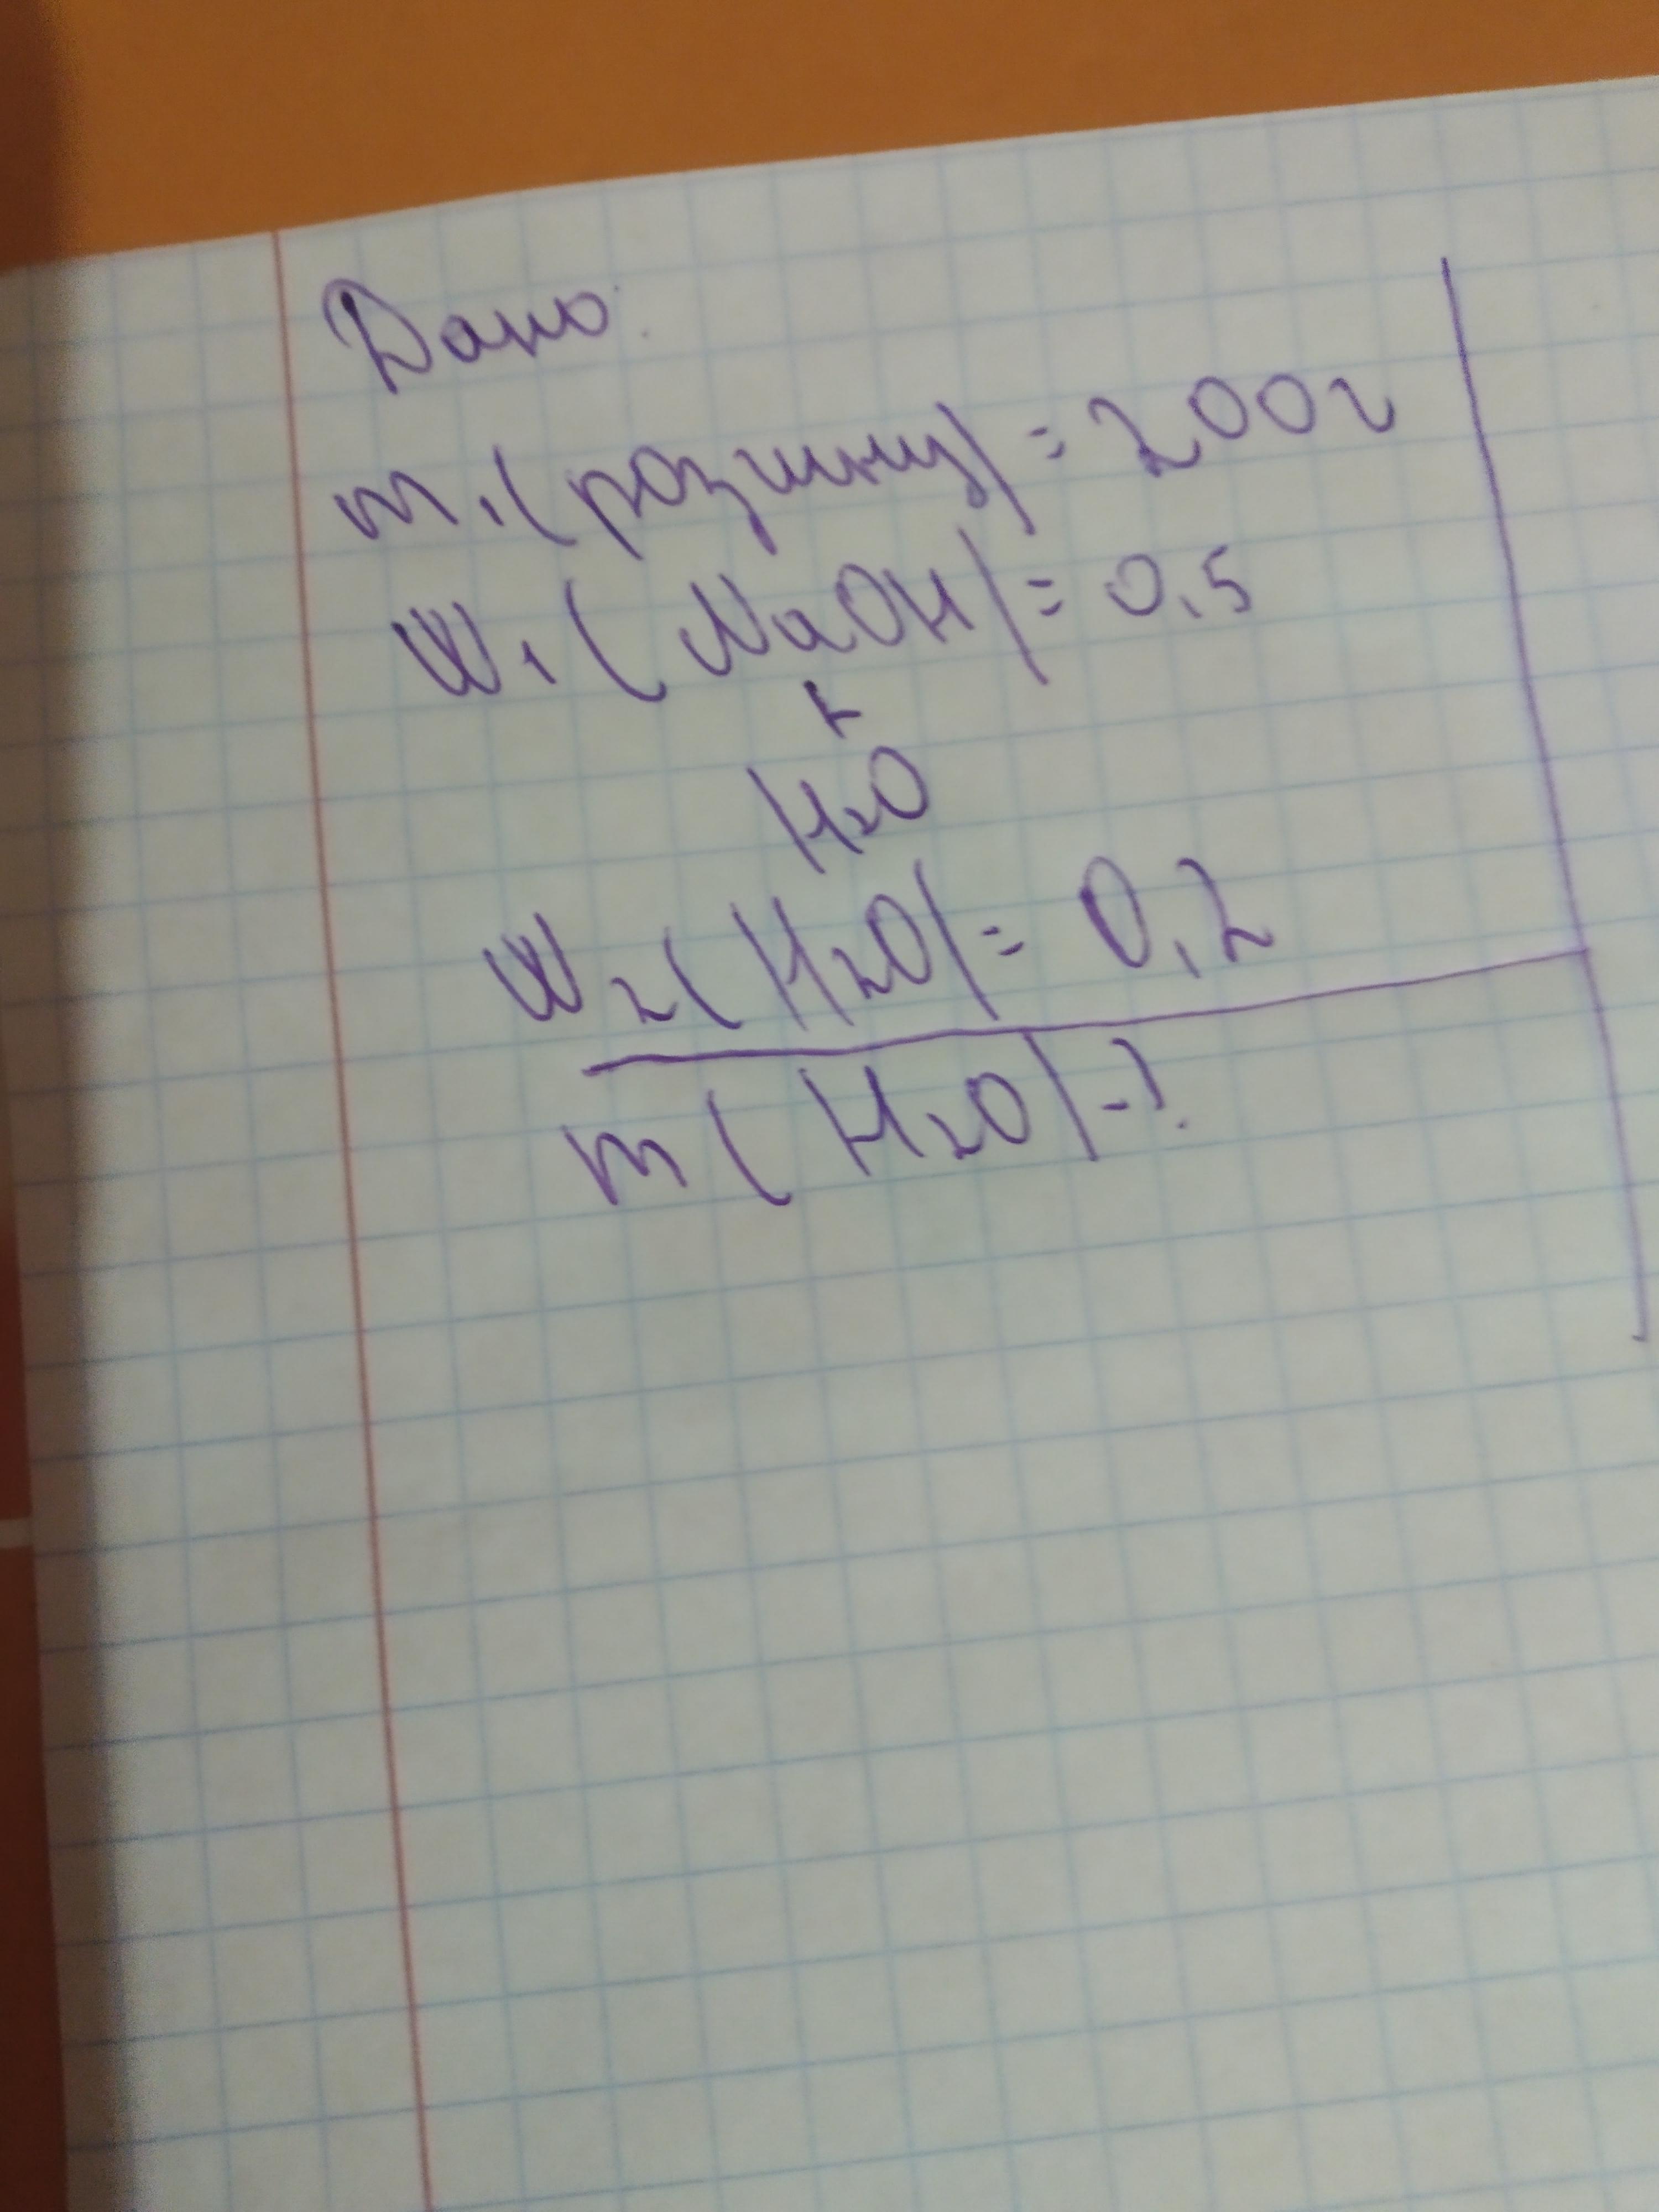 Дано:
m₁(розчину) = 200г
W₁(NaOH) = 0,5
+
H₂O
W₂(H₂O) = 0,2
m(H₂O) - ?